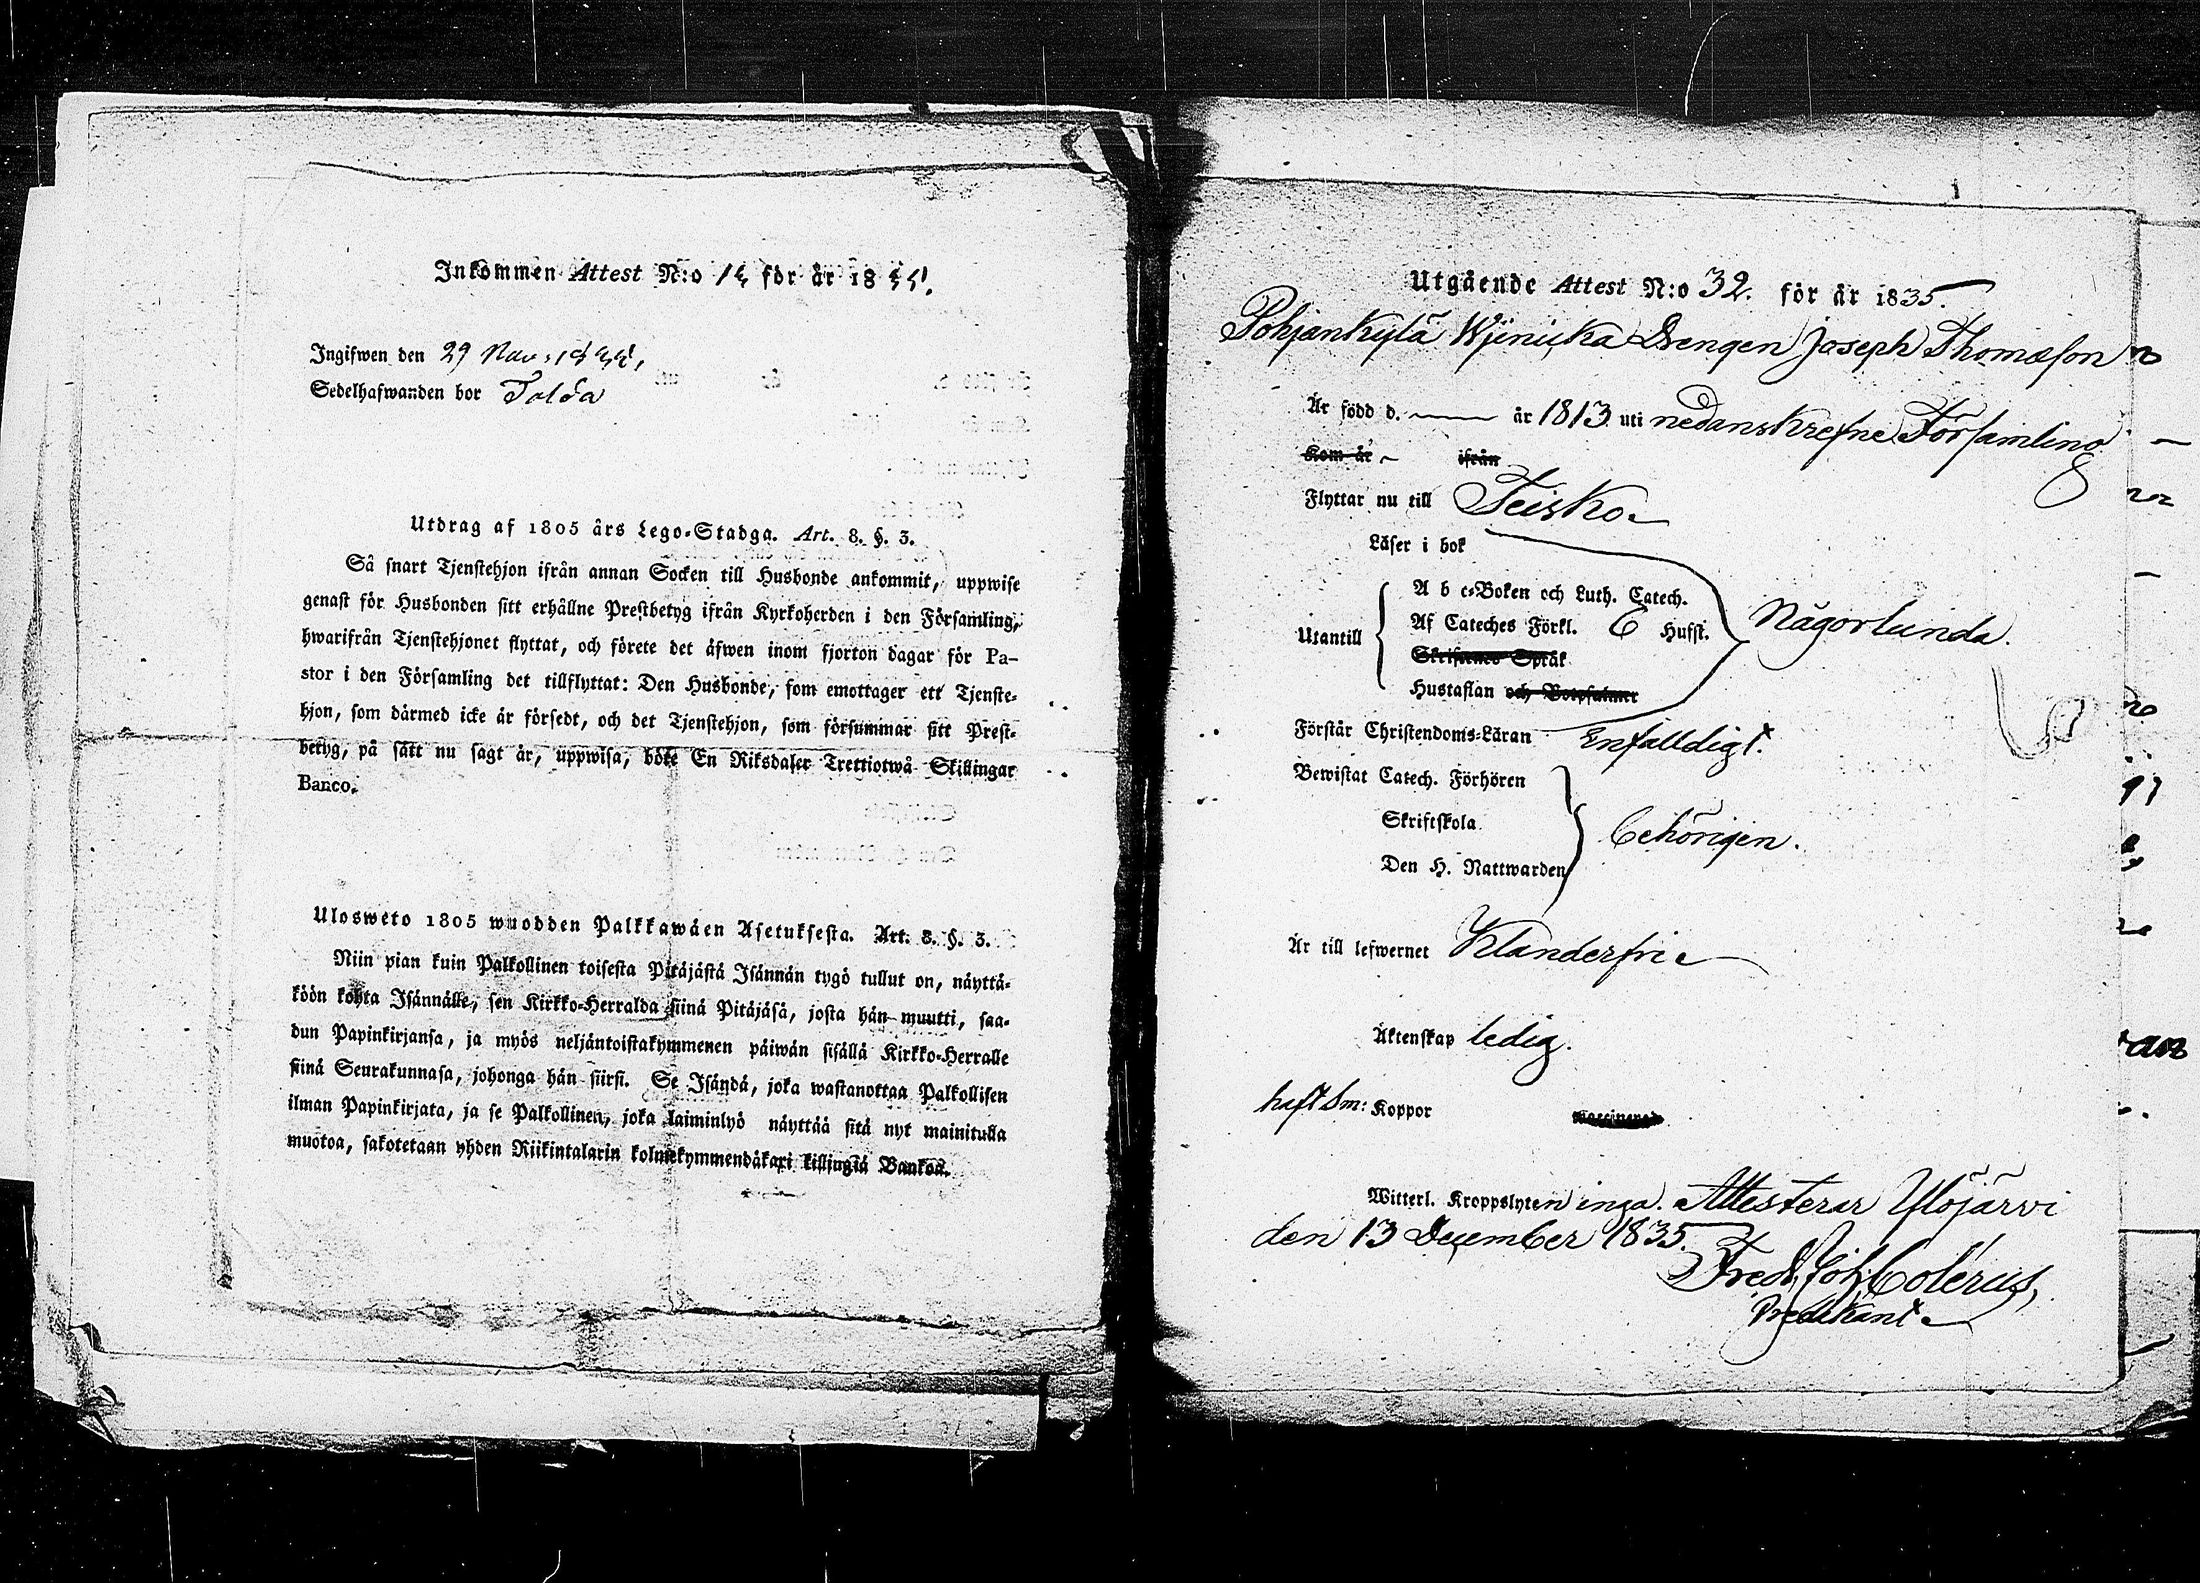 Inkommen Attest N:o 14 för år 18
Ingifwen den 29 Nov:
Sedelhafwanden bor
Utdrag af 1805 års Lego-Stadga. Art. 8. §. 3.
Så snart Tjenstehjon ifrån annan Socken till Husbonde ankommit, uppwise
genast för Husbonden sitt erhållne Prestbetyg ifrån Kyrkoherden i den Församling,
hwarifrån Tjenstehjonet flyttat, och förete det äfwen inom fjorton dagar för Pa-
stor i den Församling det tillflyttat: Den Husbonde, som emottager ett Tjenste-
hjon, som därmed icke är försedt, och det Tjenstehjon, som försummar sitt Prest-
betyg, på sätt nu sagt är, uppwisa, böte En Riksdaler Trettiotwå Skillingar
Banco.
Ulosweto 1805 wuodden Palkkawäen Asetuksesta. Art. 8. §. 3.
Niin pian kuin Palkollinen toisesta Pitäjästä Isännän tygö tullut on, näyttä-
köön kohta Isännälle, sen Kirkko-Herralda siinä Pitäjäsä, josta hän muutti, saa-
dun Papinkirjansa, ja myös neljäntoistakymmenen päiwän sisällä Kirkko-Herralle
siinä Seurakunnasa, johonga hän siirsi. Se Isändä, joka wastanottaa Palkollisen
ilman Papinkirjata, ja se Palkollinen, joka laiminlyö näyttää sitä nyt mainitulla
muotoa, sakotetaan yhden Riikintalarin kolmekymmendäkaxi killingiä Bankoa.
Utgående Attest N:o 32. för år 1835.
Pohjankylä Wjinicka Drengen Joseph Thomasson
Är född d. — år 1813 uti nedanskrefne Församling
Kom år ~ ifrån
Flyttar nu till Teisko.
Läser i bok
A b c-Boken och Luth. Catech.
Utantill Af Cateches Förkl. E Hufst. Någorlunda.
Skriftenes Språk
Hustaflan och Botpsalmer
Förstår Christendoms-Läran Enfalldigt.
Bewistat Catech. Förhören
Skriftskola behörigen.
Den H. Nattwarden
Är till lefwernet Klanderfri.
Äktenskap ledig.
haft Sm: Koppor
Witterl. Kroppslyten inga. Attesterar Ylöjärvi
den 13 December 1835.
Fredr. Joh: Colerus,
Predikant.